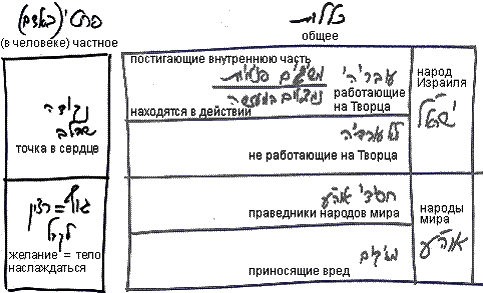 פרטי (באדם)
(в человеке) частное
כללות
общее
נקודה
שבלב
точка в сердце
גוף = רצון
לקבל
желание = тело
наслаждаться
постигающие внутреннюю часть
משיגים פנימיות
נמצאים במעשה
находятся в действии
עובדי ה'
работающие
на Творца
לא עובדי ה'
не работающие на Творца
народ
Израиля
ישראל
חסידי אוה"ע
праведники народов мира
מזיקים
приносящие вред
народы
мира
אוה"ע